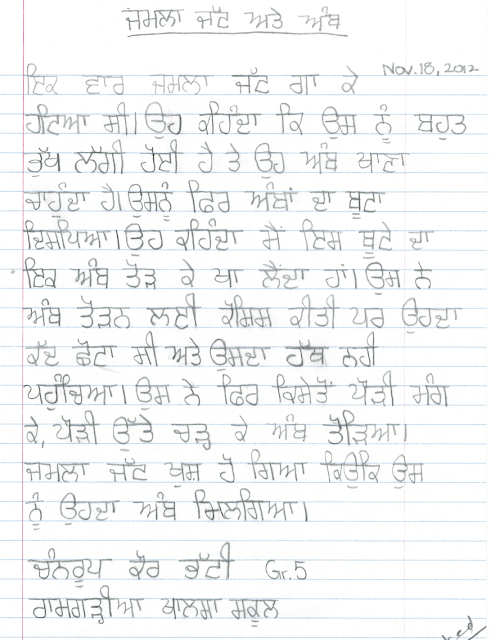 ਜਮਲਾ ਜੱਟ ਅਤੇ ਅੰਬ
Nov. 18, 2012
ਇਕ ਵਾਰ ਜਮਲਾ ਜੱਟ ਗਾ ਕੇ
ਹਟਿਆ ਸੀ। ਉਹ ਕਹਿੰਦਾ ਕਿ ਉਸ ਨੂੰ ਬਹੁਤ
ਭੁੱਖ ਲੱਗੀ ਹੋਈ ਹੈ ਤੇ ਉਹ ਅੰਬ ਖਾਣਾ
ਚਾਹੁੰਦਾ ਹੈ। ਉਸਨੂੰ ਫਿਰ ਅੰਬਾਂ ਦਾ ਬੂਟਾ
ਦਿਸਪਿਆ। ਉਹ ਕਹਿੰਦਾ ਮੈਂ ਇਸ ਬੂਟੇ ਦਾ
ਇਕ ਅੰਬ ਤੋੜ ਕੇ ਖਾ ਲੈਂਦਾ ਹਾਂ। ਉਸ ਨੇ
ਅੰਬ ਤੋੜਨ ਲਈ ਕੋਸਿਸ ਕੀਤੀ ਪਰ ਉਹਦਾ
ਕੱਦ ਛੋਟਾ ਸੀ ਅਤੇ ਉਸਦਾ ਹੱਥ ਨਹੀ
ਪਹੁੰਚਿਆ। ਉਸ ਨੇ ਫਿਰ ਕਿਸੇਤੋਂ ਪੌੜੀ ਮੰਗ
ਕੇ, ਪੌੜੀ ਉੱਤੇ ਚੜ੍ਹ ਕੇ ਅੰਬ ਤੋੜਿਆ।
ਜਮਲਾ ਜੱਟ ਖੁਸ ਹੋ ਗਿਆ ਕਿਉਂਕਿ ਉਸ
ਨੂੰ ਉਹਦਾ ਅੰਬ ਮਿਲਗਿਆ।
ਚੰਨਰੂਪ ਕੌਰ ਭੱਟੀ Gr. 5
ਰਾਮਗੜੀਆ ਖਾਲਸਾ ਸਕੂਲ